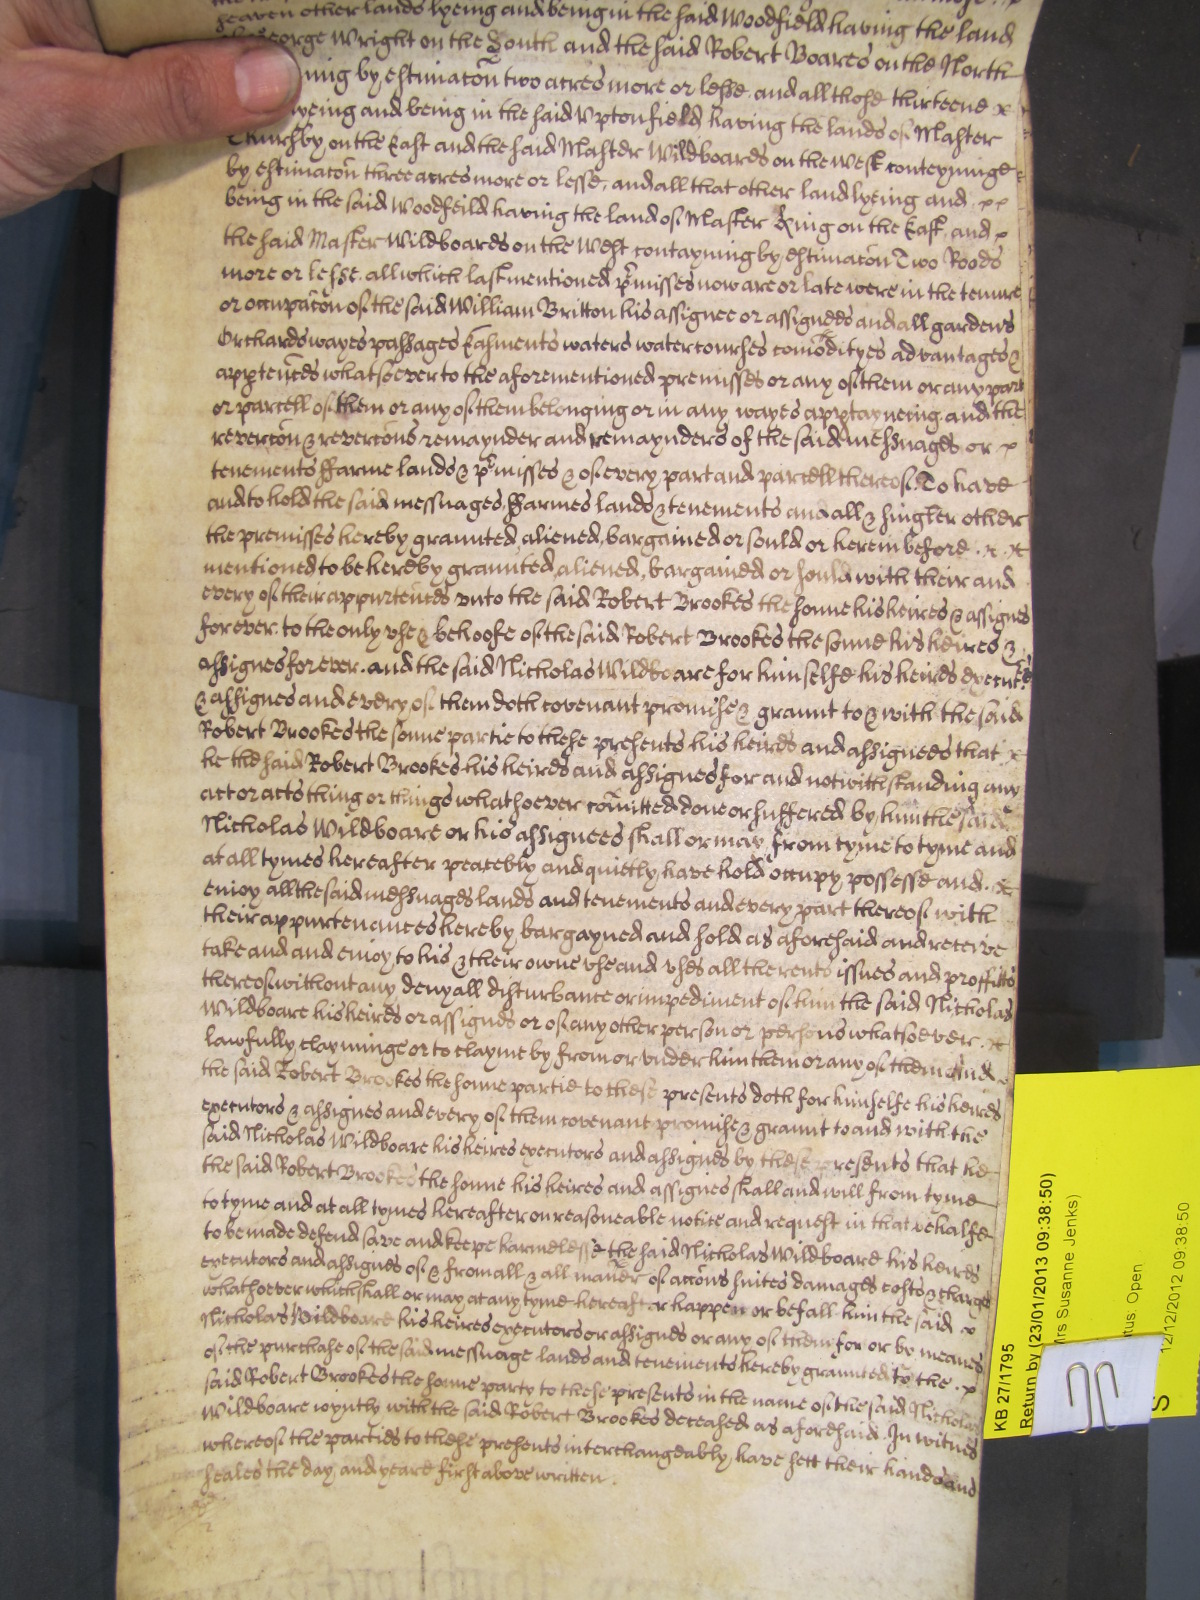 heaven other lands lyeing and being in the said Woodfield having the land
George Wright on the South and the said Robert Boares on the North
ning by estimacōn two acres more or lesse. and all those thirteene x
lyeing and being in the said Uptonfield having the lands of Master
Thursby on the East and the said Master Wildboards on the West conteyninge
by estimacōn three acres more or lesse, and all that other land lyeing and
being in the said Woodfeild having the land of Master King on the East and
the said Master Wildboards on the West contayning by estimacōn Two Roods
more or lesse. all which last mentioned p̄misses now are or late were in the tenure
or occupacōn of the said William Britton his assignee or assignees and all gardens
Orchards wayes passages Easments waters watercourses comōdityes advantages &
apptēnces whatsoever to the aforementioned premisses or any of them or any part
or parcell of them or any of them belonging or in any wayes apptayneing and the
revercōn & revercōns remaynder and remaynders of the said messuages or
tenements ffarme lands & p̄misses & of every part and parcell thereof. To have
and to hold the said messuages, ffarmes lands & tenements and all & singler other
the premisses hereby graunted aliened, bargained or sould or herein before . x . x
mentioned to be hereby graunted, aliened, bargained or sould with their and
every of their appurtēnces unto the said Robert Brookes the sonne his heires & assignes
forever. to the only use & behoofe of the said Robert Brookes the sonne his heires &
assignes forever. and the said Nicholas Wildboare for himselfe his heires execut
& assignes and every of them doth covenant promise & graunt to & with the said
Robert Brookes the sonne partie to these presents his heires and assignees that x
he the said Robert Brookes his heires and assignes for and notwithstanding any
act or acts thing or things whatsoever com̄itted done or suffered by him the said
Nicholas Wildboare or his assignees shall or may from tyme to tyme and
at all tymes hereafter peacebly and quietly have hold occupy possesse and . x
enioy all the said messuages lands and tenements and every part thereof with
their appurtenances hereby bargayned and sold as aforesaid and receive
take and and enioy to his & their owne use and uses all the rents issues and proffitts
thereof without any denyall disturbance or impediment of him the said Nicholas
Wildboare his heires or assignes or of any other person or persons whatsoever . x
lawfully clayminge or to clayme by from or under him them or any of them And
the said Robert Brookes the sonne partie to these presents doth for himselfe his heires
executors & assignes and every of them covenant promise & graunt to and with the
said Nicholas Wildboare his heires executors and assignes by these presents that he
the said Robert Brookes the sonne his heires and assignes shall and will from tyme
to tyme and at all tymes hereafter on reasoneable notice and request in that behalfe
to be made defend save and keepe harmelesse the said Nicholas Wildboare his heires
executors and assignes of & from all & all man̄er of accōns suites damages costs & charges
whatsoever which shall or may at any tyme hereafter happen or befall him the said x
Nicholas Wildboare his heires executors or assignes or any of them for or by meanes
of the purchase of the said messuage lands and tenements hereby graunted to the . x
said Robert Brookes the sonne party to these presents in the name of the said Nicholas
Wildboare ioyntly with the said Robert Brookes deceased as aforesaid. In witnes
whereof the parties to these presents interchangeably have sett their hands and
seales the day and yeare first above written .
KB 27/1795
Return by (23/01/2013 09:38:50)
Mrs Susanne Jenks)
tus: Open
12/12/2012 09:38:50
S